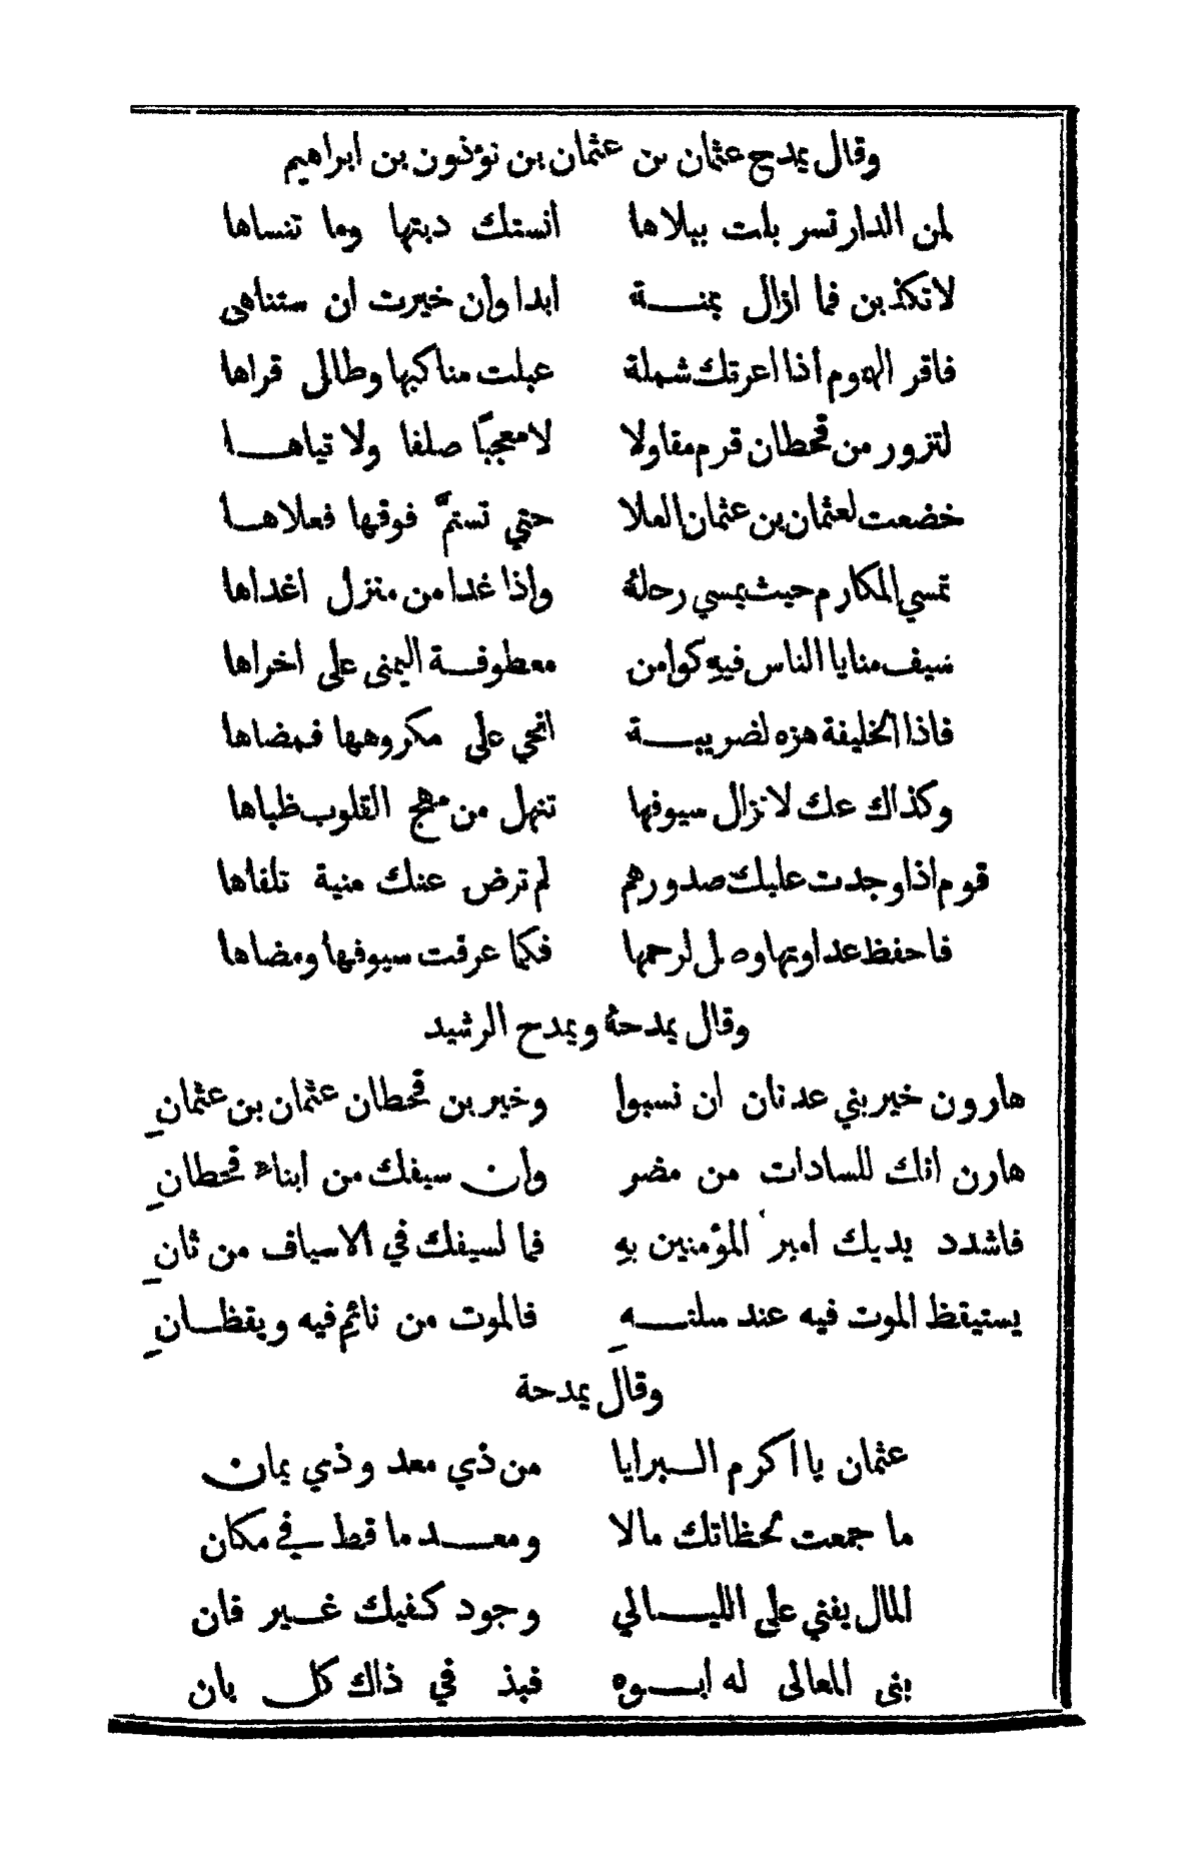 وقال يمدح عثمان بن عثمان بن نؤذون بن ابراهيم
لمن الدار تسر بلت ببلاها انستك دبتها وما تنساها
لا تكذبن فما ازال بمنة ابدا وأن خيرت ان ستناهى
فاقر الهموم أذا اعرتك شملة عبلت مناكبها وطالى قراها
لتزور من قحطان قرم مقاولا لا معجبًا صلفا ولا تياها
خضعت لعثمان بن عثمان العلا حتي تستمّ فوقها فعلاها
تمسي المكارم حيث يمسي رحلهُ وإذا غدا من منزل اغداها
سيف منايا الناس فيهِ كوامن معطوفة اليمنى على اخراها
فاذا الخليفة هزه لضريبة انحي على مكروهها فمضاها
وكذاك عك لا تزال سيوفها تنهل من مهج القلوب ظباها
قوم اذا وجدت عليك صدورهم لم ترض عنك منية تلفاها
فاحفظ عداوتها وصل لرحمها فكما عرفت سيوفها ومضاها
وقال يمدحهُ ويمدح الرشيد
هارون خير بني عدنان ان نسبوا وخير بن قحطان عثمان بن عثمانِ
هارن انك للسادات من مضر وان سيفك من ابناء قحطانِ
فاشدد يديك امير المؤمنين بهِ فما لسيفك في الاسياف من ثانِ
يستيقظ الموت فيه عند سلتهِ فالموت من نائمٍ فيه ويقظانِ
وقال يمدحة
عثمان يا اكرم البرايا من ذي معد وذي يمان
ما جمعت لحظاتك مالا ومعد ما قط في مكان
المال يفني على الليالي وجود كفيك غير فان
بنى المعالى له ابوه فبذ في ذاك كل بان